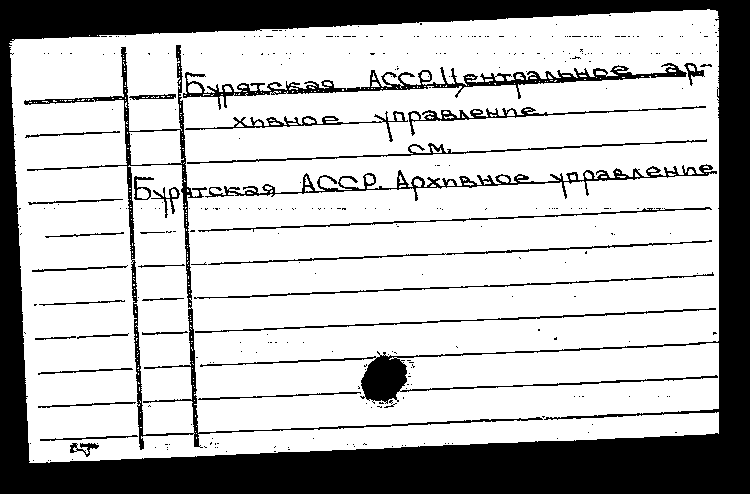 Бурятская АССР. Центральное ар-
хивное управление.
см.
Бурятская АССР. Архивное управление